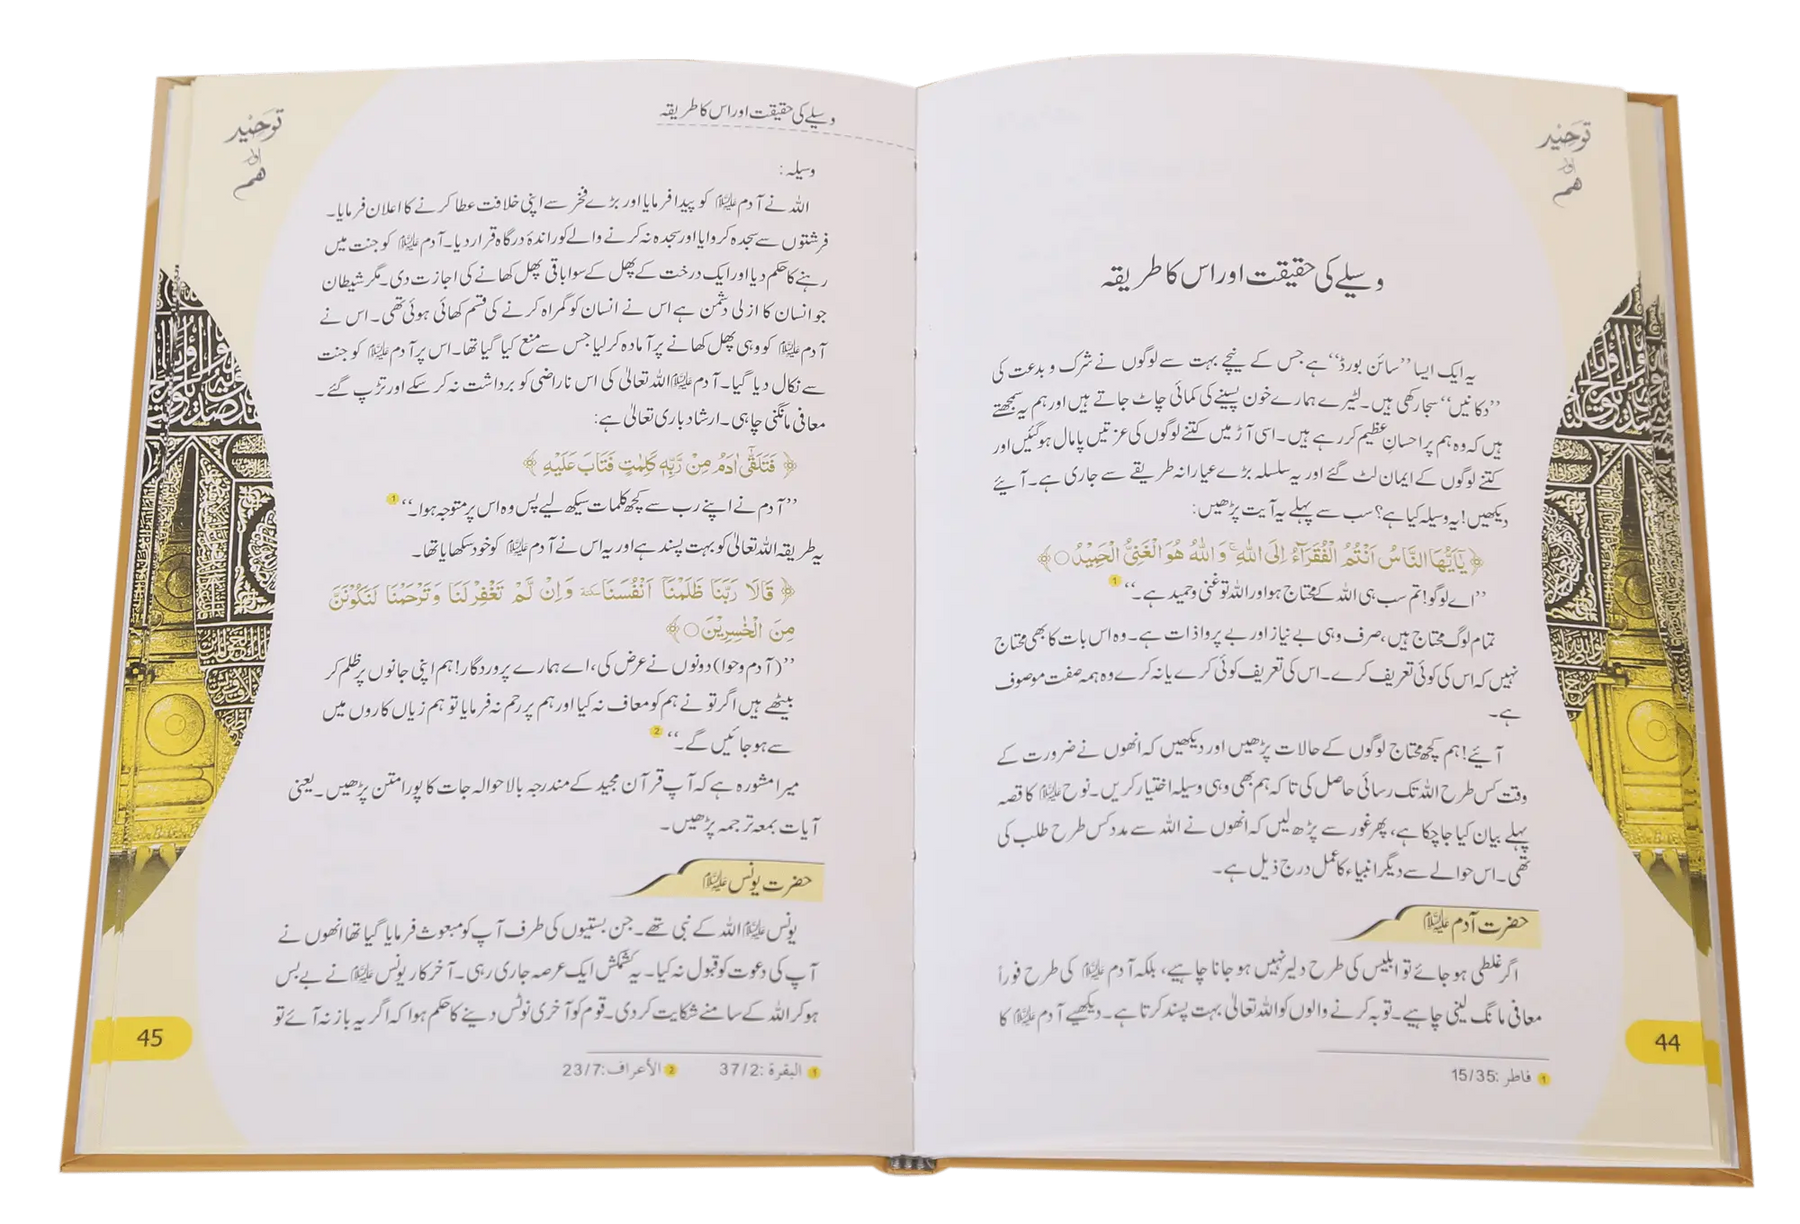 توحید
اور
ھم
وسیلے کی حقیقت اور اس کا طریقہ
یہ ایک ایسا ’’سائن بورڈ‘‘ ہے جس کے نیچے بہت سے لوگوں نے شرک و بدعت کی
’’دکانیں‘‘ سجا رکھی ہیں۔ لٹیرے ہمارے خون پسینے کی کمائی چاٹ جاتے ہیں اور ہم یہ سمجھتے
ہیں کہ وہ ہم پر احسانِ عظیم کر رہے ہیں۔ اسی آڑ میں کتنے لوگوں کی عزتیں پامال ہوگئیں اور
کتنے لوگوں کے ایمان لٹ گئے اور یہ سلسلہ بڑے عیارانہ طریقے سے جاری ہے۔ آیئے
دیکھیں! یہ وسیلہ کیا ہے؟ سب سے پہلے یہ آیت پڑھیں:
﴿یٰۤاَیُّهَا النَّاسُ اَنْتُمُ الْفُقَرَآءُ اِلَی اللّٰهِ ۚ وَ اللّٰهُ هُوَ الْغَنِیُّ الْحَمِیْدُ○﴾
’’اے لوگو! تم سب ہی اللہ کے محتاج ہو اور اللہ تو غنی و حمید ہے۔‘‘ 1
تمام لوگ محتاج ہیں، صرف وہی بے نیاز اور بے پروا ذات ہے۔ وہ اس بات کا بھی محتاج
نہیں کہ اس کی کوئی تعریف کرے۔ اس کی تعریف کوئی کرے یا نہ کرے وہ ہمہ صفت موصوف
ہے۔
آیئے! ہم کچھ محتاج لوگوں کے حالات پڑھیں اور دیکھیں کہ انھوں نے ضرورت کے
وقت کس طرح اللہ تک رسائی حاصل کی تاکہ ہم بھی وہی وسیلہ اختیار کریں۔ نوح علیہ السلام کا قصہ
پہلے بیان کیا جا چکا ہے، پھر غور سے پڑھ لیں کہ انھوں نے اللہ سے مدد کس طرح طلب کی
تھی۔ اس حوالے سے دیگر انبیاء کا عمل درج ذیل ہے۔
حضرت آدم علیہ السلام
اگر غلطی ہو جائے تو ابلیس کی طرح دلیر نہیں ہو جانا چاہیے، بلکہ آدم علیہ السلام کی طرح فوراً
معافی مانگ لینی چاہیے۔ توبہ کرنے والوں کو اللہ تعالیٰ بہت پسند کرتا ہے۔ دیکھیے آدم علیہ السلام کا
1 فاطر :15/35
44
توحید
اور
ھم
وسیلے کی حقیقت اور اس کا طریقہ
وسیلہ:
اللہ نے آدم علیہ السلام کو پیدا فرمایا اور بڑے فخر سے اپنی خلافت عطا کرنے کا اعلان فرمایا۔
فرشتوں سے سجدہ کروایا اور سجدہ نہ کرنے والے کو راندۂ درگاہ قرار دیا۔ آدم علیہ السلام کو جنت میں
رہنے کا حکم دیا اور ایک درخت کے پھل کے سوا باقی پھل کھانے کی اجازت دی۔ مگر شیطان
جو انسان کا ازلی دشمن ہے اس نے انسان کو گمراہ کرنے کی قسم کھائی ہوئی تھی۔ اس نے
آدم علیہ السلام کو وہی پھل کھانے پر آمادہ کر لیا جس سے منع کیا گیا تھا۔ اس پر آدم علیہ السلام کو جنت
سے نکال دیا گیا۔ آدم علیہ السلام اللہ تعالیٰ کی اس ناراضی کو برداشت نہ کر سکے اور تڑپ گئے۔
معافی مانگنی چاہی۔ ارشاد باری تعالیٰ ہے:
﴿فَتَلَقّٰۤی اٰدَمُ مِنْ رَّبِّهٖ كَلِمٰتٍ فَتَابَ عَلَیْهِ﴾
’’آدم نے اپنے رب سے کچھ کلمات سیکھ لیے پس وہ اس پر متوجہ ہوا۔‘‘ 1
یہ طریقہ اللہ تعالیٰ کو بہت پسند ہے اور یہ اس نے آدم علیہ السلام کو خود سکھایا تھا۔
﴿قَالَا رَبَّنَا ظَلَمْنَاۤ اَنْفُسَنَا سكتة وَاِنْ لَّمْ تَغْفِرْ لَنَا وَتَرْحَمْنَا لَنَكُوْنَنَّ
مِنَ الْخٰسِرِیْنَ○﴾
’’(آدم و حوا) دونوں نے عرض کی، اے ہمارے پروردگار! ہم اپنی جانوں پر ظلم کر
بیٹھے ہیں اگر تو نے ہم کو معاف نہ کیا اور ہم پر رحم نہ فرمایا تو ہم زیاں کاروں میں
سے ہو جائیں گے۔‘‘ 2
میرا مشورہ ہے کہ آپ قرآن مجید کے مندرجہ بالا حوالہ جات کا پورا متن پڑھیں۔ یعنی
آیات بمعہ ترجمہ پڑھیں۔
حضرت یونس علیہ السلام
یونس علیہ السلام اللہ کے نبی تھے۔ جن بستیوں کی طرف آپ کو مبعوث فرمایا گیا تھا انھوں نے
آپ کی دعوت کو قبول نہ کیا۔ یہ کشمکش ایک عرصہ جاری رہی۔ آخر کار یونس علیہ السلام نے بے بس
ہو کر اللہ کے سامنے شکایت کر دی۔ قوم کو آخری نوٹس دینے کا حکم ہوا کہ اگر یہ باز نہ آئے تو
1 البقرة :37/2 2 الأعراف:23/7
45